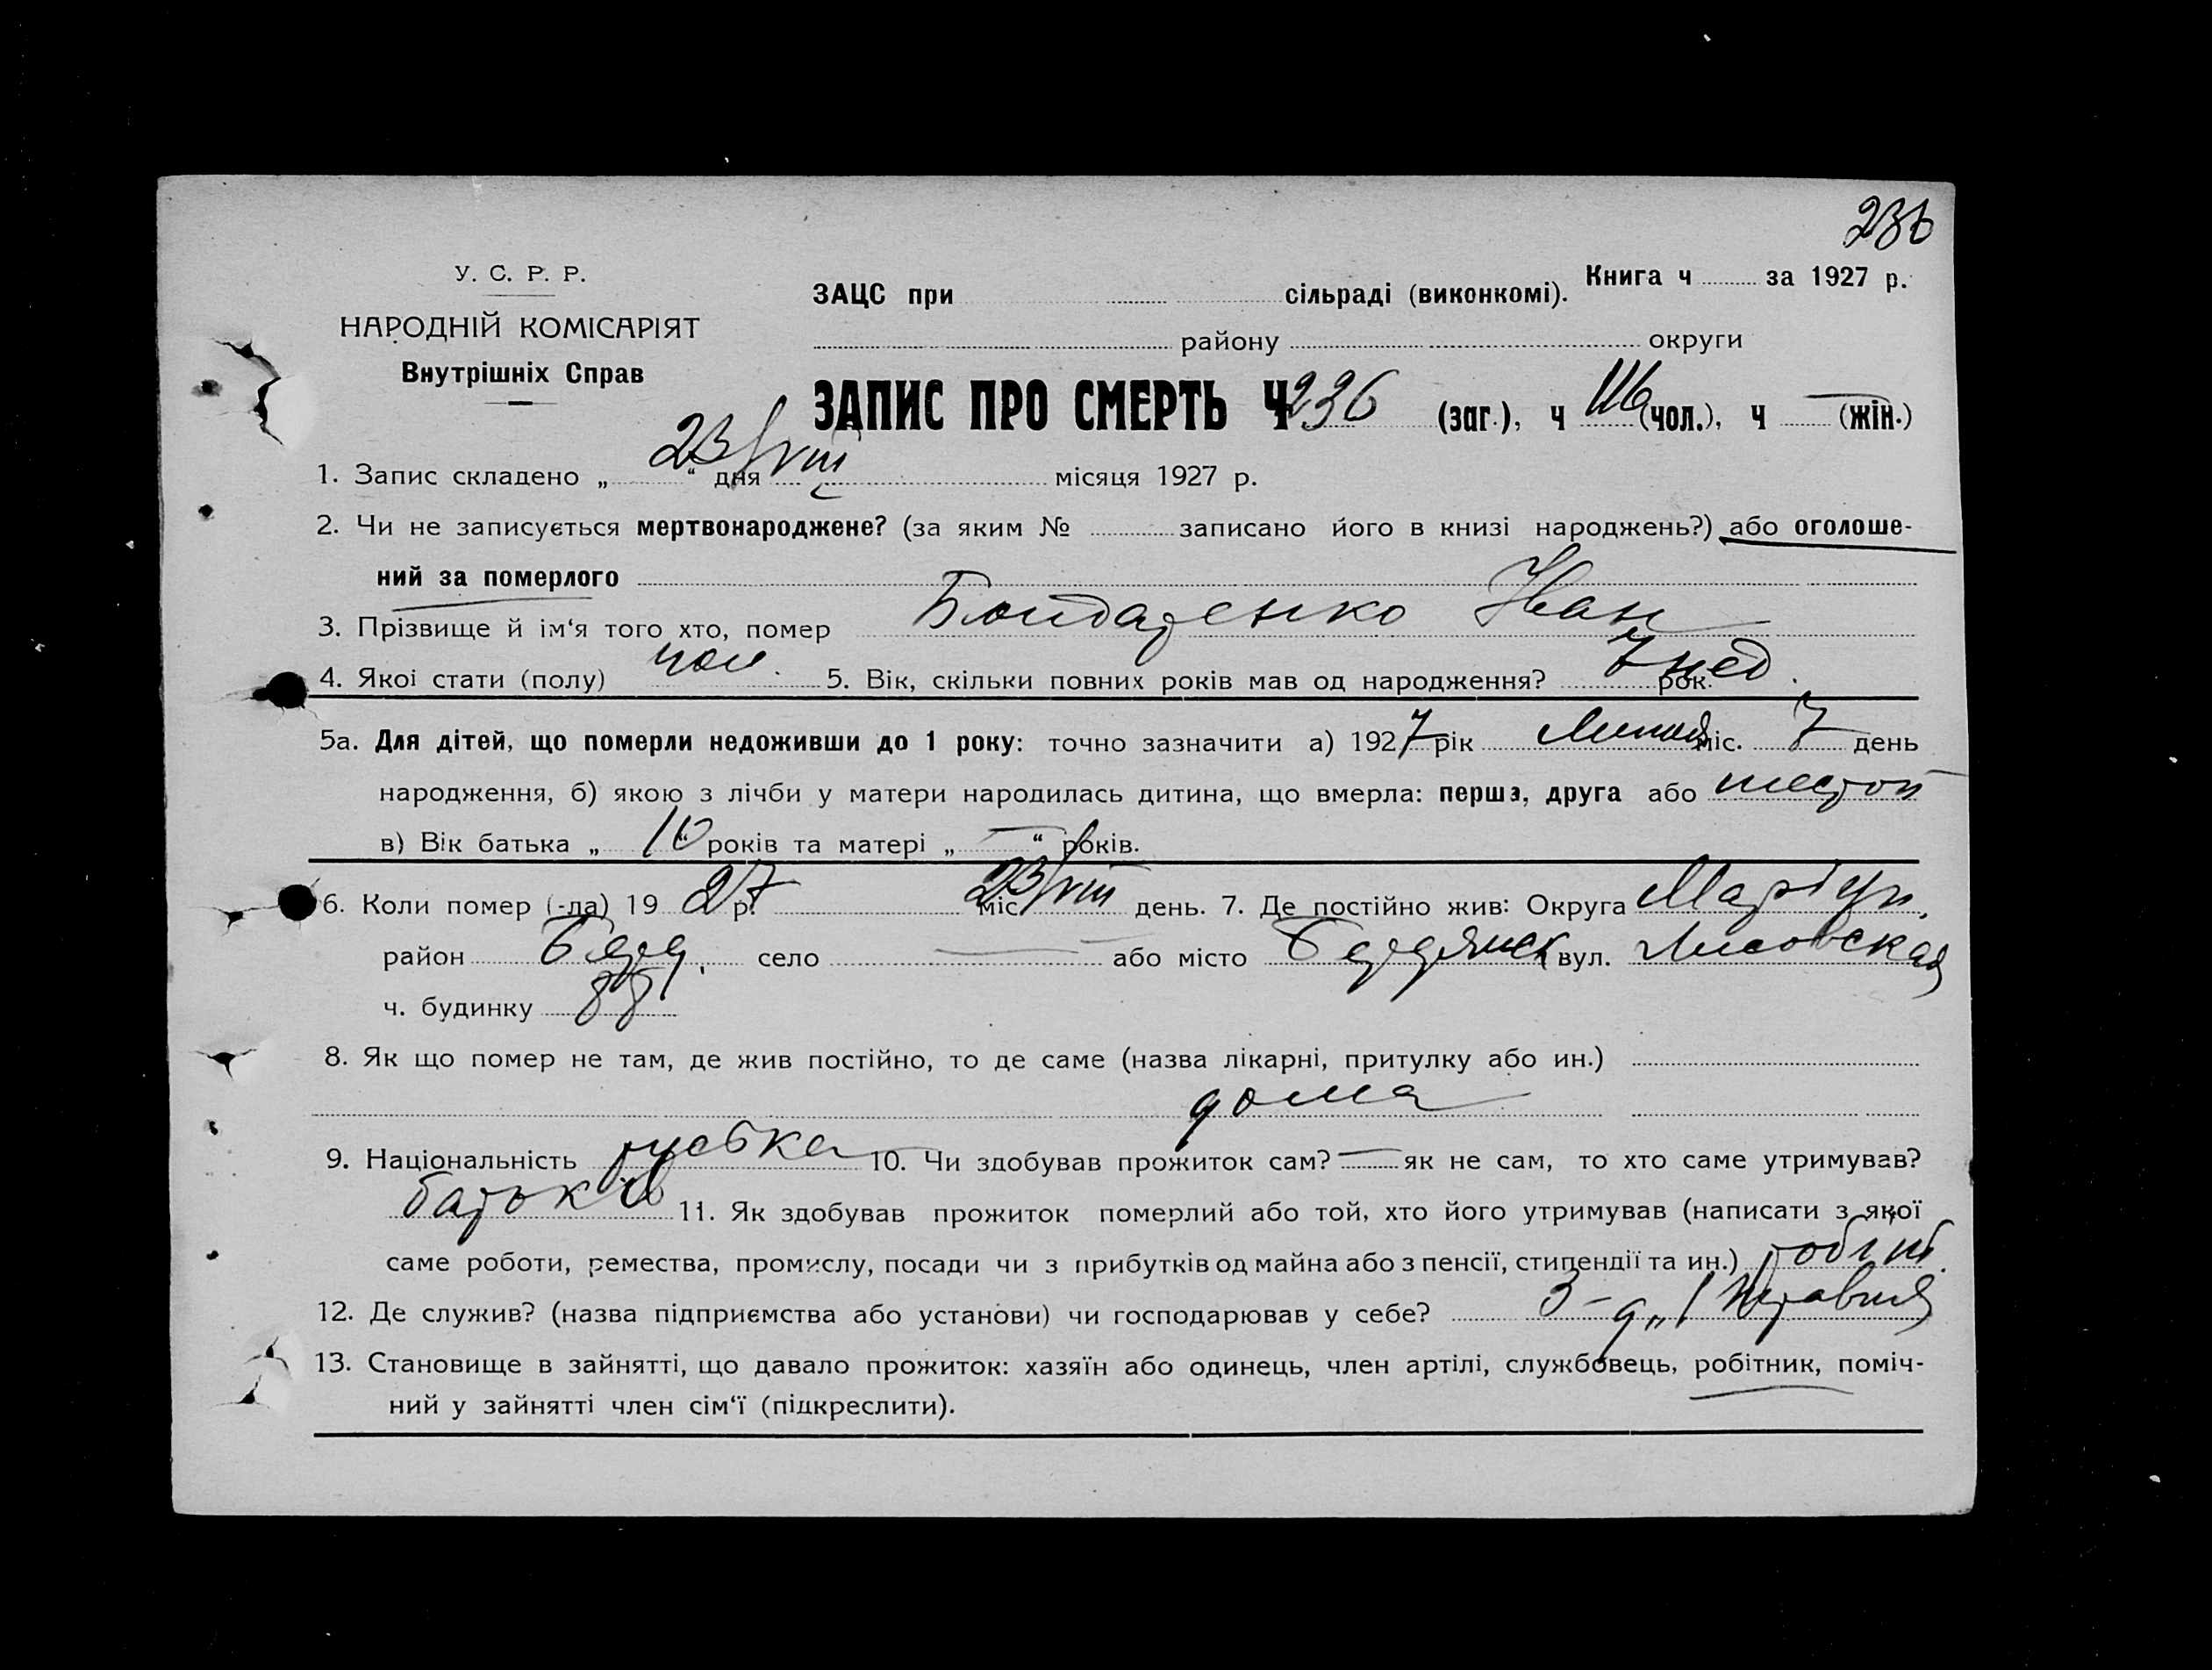 236
У. С. Р. Р.
НАРОДНІЙ КОМІСАРІЯТ
Внутрішніх Справ
Книга ч за 1927 р.
ЗАЦС при сільраді (виконкомі).
району округи
ЗАПИС ПРО СМЕРТЬ Ч 236 (заг.), ч (чол.), ч — (жін.)
1. Запис складено „ 23/VIII “ дня місяця 1927 р.
2. Чи не записується мертвонароджене? (за яким № записано його в книзі народжень?) або оголоше-
ний за померлого
3. Прізвище й ім‘я того хто, помер Бондаренко Иван
4. Якої стати (полу) чол. 5. Вік, скільки повних років мав од народження? 7 нед. рок.
5а. Для дітей, що померли недоживши до 1 року: точно зазначити а) 1927 рік Липня міс. 7 день
народження, б) якою з лічби у матери народилась дитина, що вмерла: перша, друга або
в) Вік батька „ “ років та матері „ — “ років.
6. Коли помер (-ла) 1927 р. 23/VIII міс. день. 7. Де постійно жив: Округа Маріуп.
район Берд. село — або місто Бердянск вул. Лисовская
ч. будинку 88
8. Як що помер не там, де жив постійно, то де саме (назва лікарні, притулку або ин.)
дома
9. Національність руська 10. Чи здобував прожиток сам? — як не сам, то хто саме утримував?
батько 11. Як здобував прожиток померлий або той, хто його утримував (написати з якої
саме роботи, ремества, промислу, посади чи з прибутків од майна або з пенсії, стипендії та ин.) робітн.
12. Де служив? (назва підприємства або установи) чи господарював у себе? З-д „1 Травня
13. Становище в зайнятті, що давало прожиток: хазяїн або одинець, член артілі, службовець, робітник, поміч-
ний у зайнятті член сім‘ї (підкреслити).